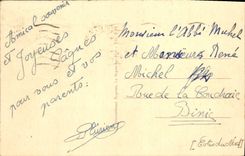 Amical souvenir
et Joyeuses
Pâques
pour vous et vos
parents.
Monsieur l'Abbé Michel
et Monsieur René
Michel
Rue de la
Binic